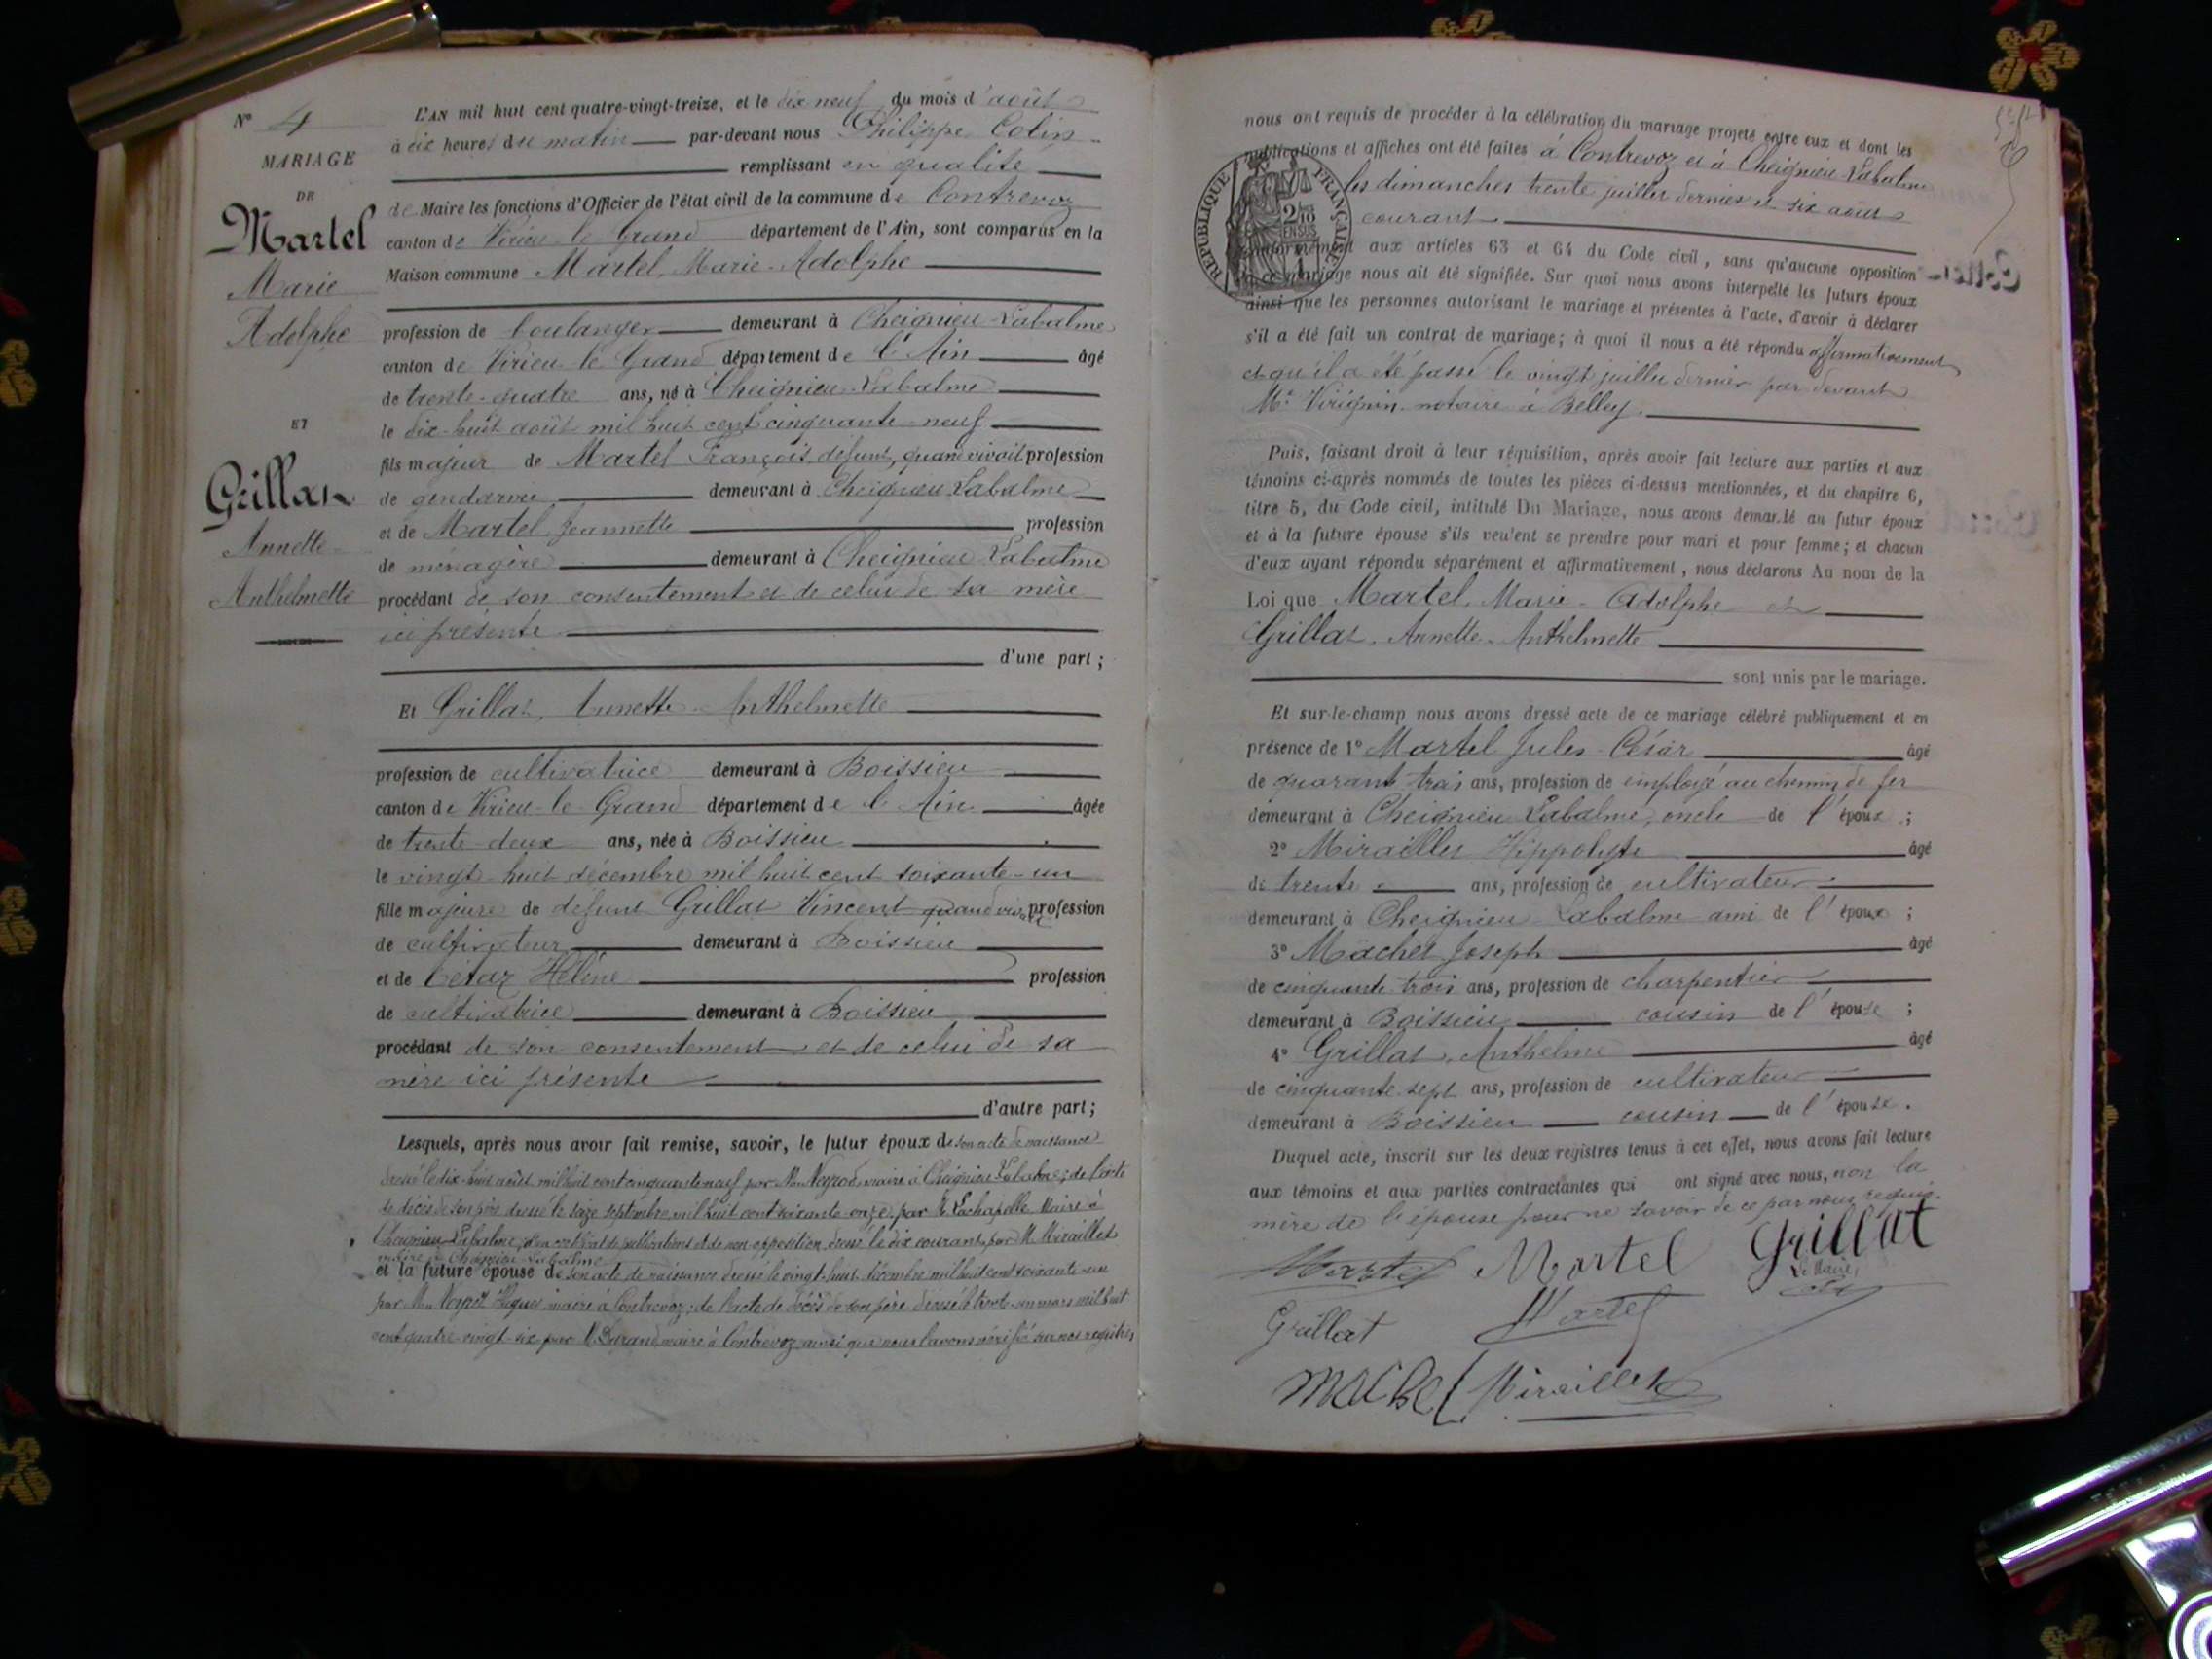 N° 4
MARIAGE
DE
Martel
Marie
Adolphe
ET
Grillat
Annette
Anthelmette
L'AN mil huit cent quatre-vingt-treize, et le dix neuf du mois d'août
à dix heures du matin par-devant nous Philippe Colin
remplissant en qualité
de Maire les fonctions d'Officier de l'état civil de la commune de Contrevoz
canton de Virieu-le-Grand département de l'Ain, sont comparus en la
Maison commune Martel, Marie-Adolphe
profession de boulanger demeurant à Cheignieu-Labalme
canton de Virieu-le-Grand département de l'Ain âgé
de trente-quatre ans, né à Cheignieu-Labalme
le dix-huit août mil huit cent cinquante-neuf
fils majeur de Martel François, défunt, quand vivait profession
de gendarme demeurant à Cheignieu Labalme
et de Martel Jeannette profession
de ménagère demeurant à Cheignieu Labalme
procédant de son consentement et de celui de sa mère
ici présente
d'une part ;
Et Grillat, Annette-Anthelmette
profession de cultivatrice demeurant à Boissieu
canton de Virieu-le-Grand département de l'Ain âgée
de trente-deux ans, née à Boissieu
le vingt-huit décembre mil huit cent soixante-un
fille majeure de défunt Grillat Vincent quand vivait profession
de cultivateur demeurant à Boissieu
et de Hélène profession
de cultivatrice demeurant à Boissieu
procédant de son consentement et de celui de sa
mère ici présente
d'autre part ;
Lesquels, après nous avoir fait remise, savoir, le futur époux de son acte de naissance
dressé le dix-huit août mil huit cent cinquante neuf par Mr maire à Cheignieu-Labalme ; de l'acte
de décès de son père dressé le seize septembre mil huit cent soixante-onze par Mr Lachapelle Maire à
Cheignieu Labalme, d'un certificat de publications et de non opposition dressé le dix courant par M. Miraillet
maire à Cheignieu-Labalme
et la future épouse de son acte de naissance dressé le vingt-huit décembre mil huit cent soixante-un
par Mr maire à Contrevoz ; de l'acte de décès de son père dressé le trente-un mars mil huit
cent quatre-vingt-six par M. maire à Contrevoz ainsi que nous l'avons vérifié sur nos registres,
nous ont requis de procéder à la célébration du mariage projeté entre eux et dont les
publications et affiches ont été faites à Contrevoz et à Cheignieu Labalme
les dimanches trente juillet dernier et six août
courant
RÉPUBLIQUE FRANÇAISE
conformément aux articles 63 et 64 du Code civil, sans qu'aucune opposition
à ce mariage nous ait été signifiée. Sur quoi nous avons interpellé les futurs époux
ainsi que les personnes autorisant le mariage et présentes à l'acte, d'avoir à déclarer
s'il a été fait un contrat de mariage ; à quoi il nous a été répondu affirmativement
et qu'il a été passé le vingt juillet dernier par devant
Me Virignin notaire à Belley.
Puis, faisant droit à leur réquisition, après avoir fait lecture aux parties et aux
témoins ci-après nommés de toutes les pièces ci-dessus mentionnées, et du chapitre 6,
titre 5, du Code civil, intitulé Du Mariage, nous avons demandé au futur époux
et à la future épouse s'ils veulent se prendre pour mari et pour femme ; et chacun
d'eux ayant répondu séparément et affirmativement, nous déclarons Au nom de la
Loi que Martel, Marie-Adolphe et
Grillat, Annette-Anthelmette
sont unis par le mariage.
Et sur-le-champ nous avons dressé acte de ce mariage célébré publiquement et en
présence de 1° Martel Jules-César âgé
de quarant trois ans, profession de employé au chemin de fer
demeurant à Cheignieu Labalme, oncle de l'époux ;
2° Miraillet Hippolyte âgé
de trente ans, profession de cultivateur
demeurant à Cheignieu Labalme ami de l'époux ;
3° Machet Joseph âgé
de cinquante-trois ans, profession de charpentier
demeurant à Boissieu cousin de l'épouse ;
4° Grillat, Anthelme âgé
de cinquante-sept ans, profession de cultivateur
demeurant à Boissieu cousin de l'épouse.
Duquel acte, inscrit sur les deux registres tenus à cet effet, nous avons fait lecture
aux témoins et aux parties contractantes qui ont signé avec nous, non la
mère de l'épouse pour ne savoir de ce par nous requis.
Martel Martel Grillat
Le Maire,
Grillat Martel
Machet Miraillet